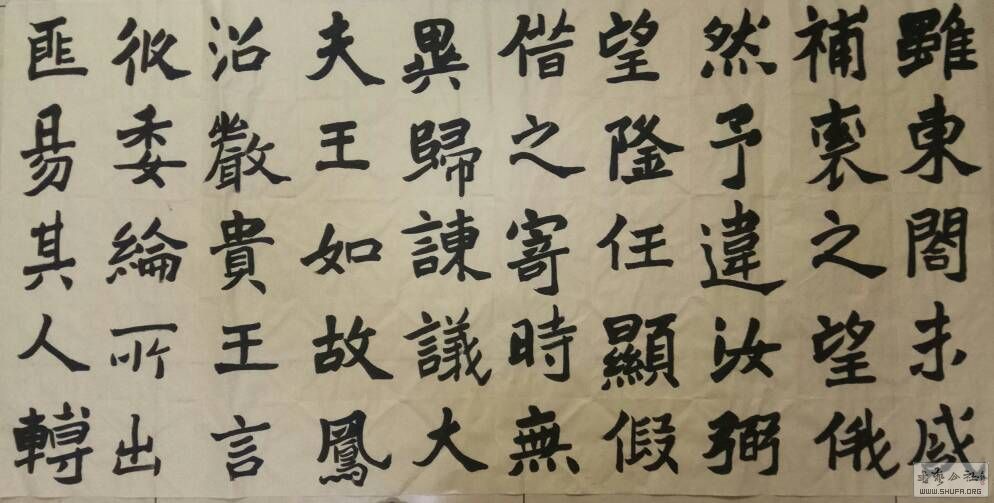 雖東閤未
補袞之望俄
然予違汝弼
望隆任顯假
借之寄時無
異歸諫議大
夫王如故鳳
沼嚴貴王言
攸委綸所出
匪易其人轉
WWW.SHUFA.ORG